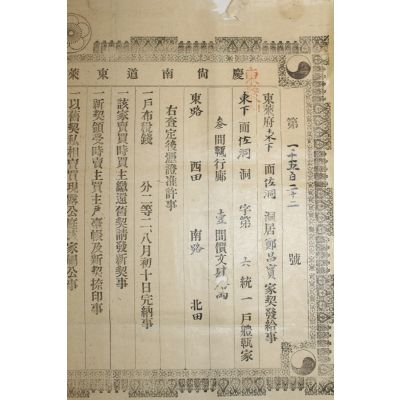 慶尙南道東萊
第一千五百二十二號
東萊府東下面佐洞洞居鄭昌寶家契發給事
東下面佐洞洞字第六統一戶體瓦家
參間瓦行廊壹間價文肆拾兩
東路 西田 南路 北田
右査定後憑證准許事
一戶布稅錢 分二等二八月初十日完納事
一該家賣買時買主繳還舊契請發新契事
一新契領受時賣主買主戶臺帳及新契捺印事
一以舊契私相賣買現露公庭該家屬公事